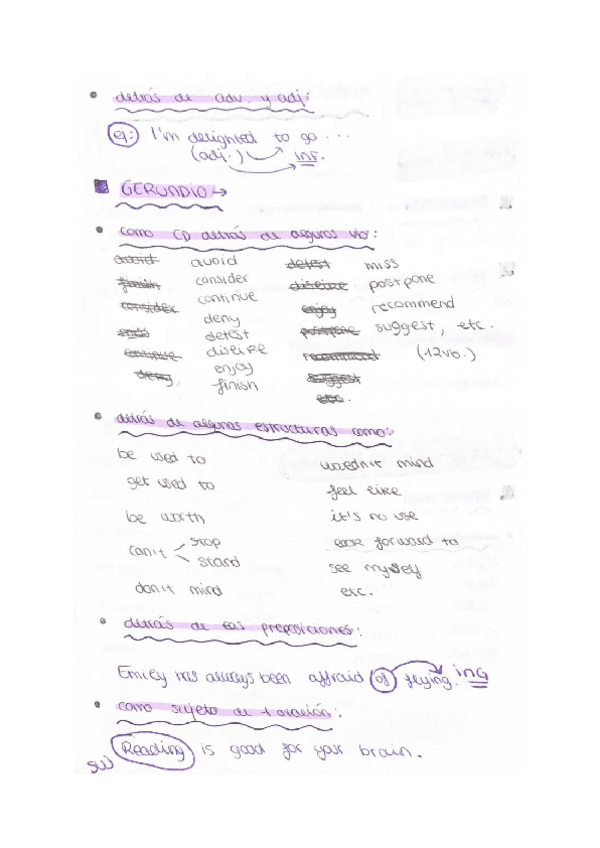 • detrás de adv. y adj:
ej: I'm delighted to go ...
(adj.) INF.
GERUNDIO →
• como CD detrás de algunos vb:
avoid avoid detest miss
finish consider dislike postpone
consider continue enjoy recommend
ends deny postpone suggest, etc.
continue detest recommend (12vb.)
deny, dislike suggest
enjoy etc.
finish
• detrás de algunas estructuras como:
be used to wouldn't mind
get used to feel like
be worth it's no use
can't stop look forward to
stand see myself
don't mind etc.
• detrás de las preposiciones:
Emily has always been affraid of flying. ING
• como sujeto de 1 oración:
Reading is good for your brain.
SUJ